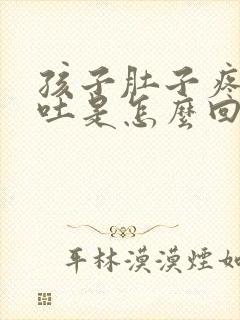 孩子肚子疼
吐是怎麼回
平林漠漠煙如